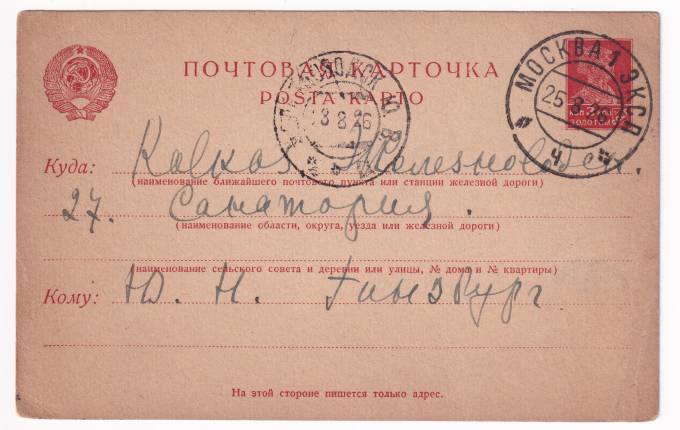 ПОЧТОВАЯ КАРТОЧКА
POŜTA KARTO
МОСКВА 1 ЭКСП.
25.8.26
Ч.
8.26
Куда: Кавказ Железноводск.
(наименование ближайшего почтового пункта или станции железной дороги)
27. Санатория.
(наименование области, округа, уезда или железной дороги)
(наименование сельского совета и деревни или улицы, № дома и № квартиры)
Кому: Ю. Н. Гинзбург
На этой стороне пишется только адрес.